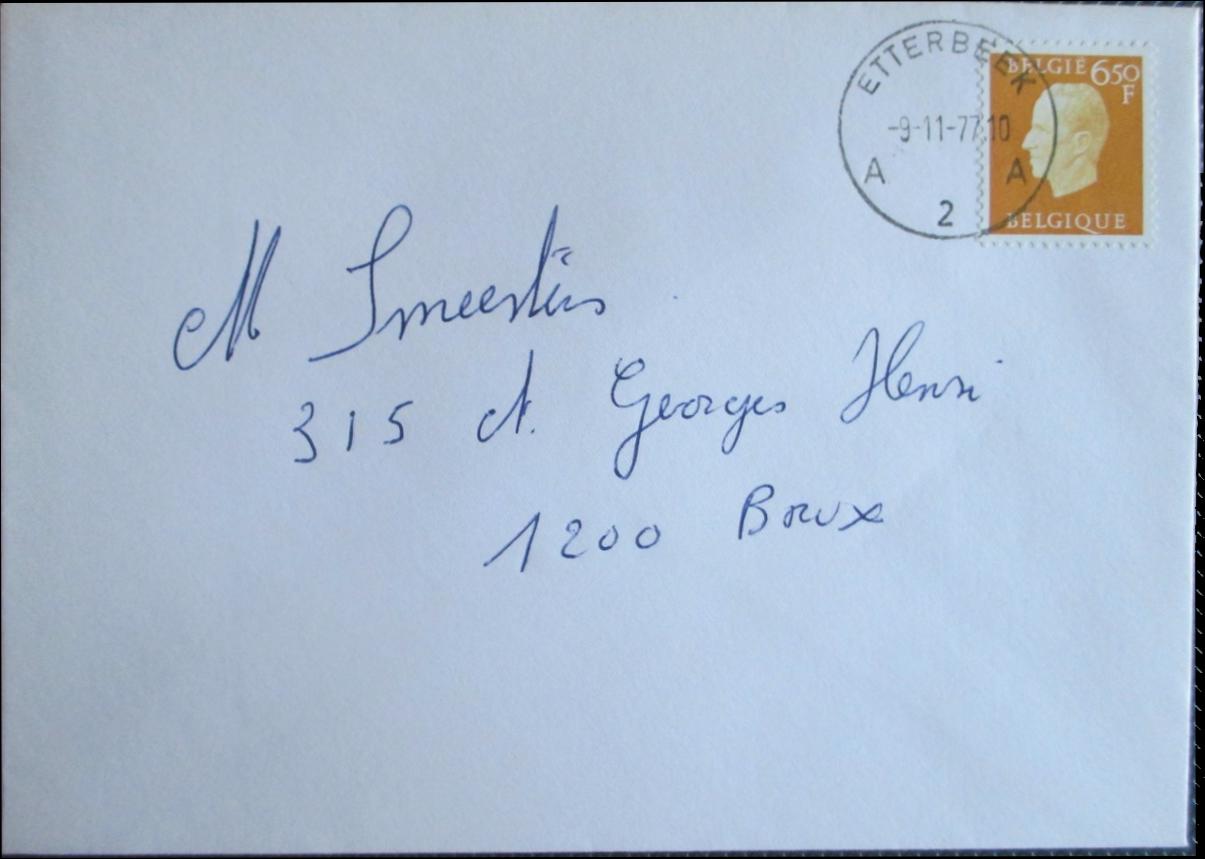 ETTERBEEK
-9-11-77.10
A A
2
BELGIË 650
F
BELGIQUE
M Smeesters
315 A. Georges Henri
1200 Brux